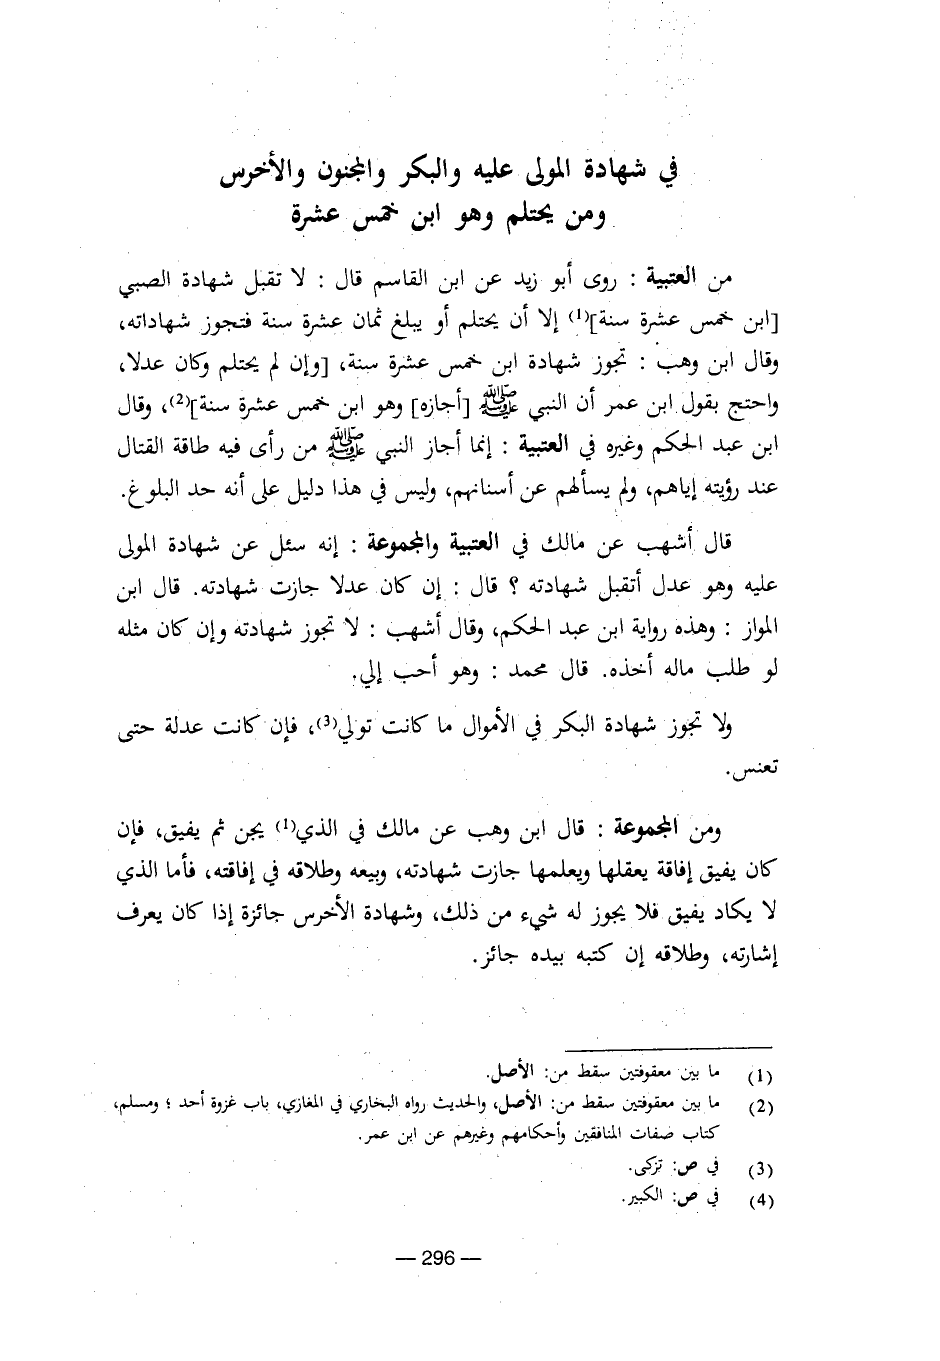 في شهادة المولى عليه والبكر والمجنون والأخرس
ومن يحتلم وهو ابن خمس عشرة
من العتبية : روى أبو زيد عن ابن القاسم قال : لا تقبل شهادة الصبي
[ابن خمس عشرة سنة](1) إلا أن يحتلم أو يبلغ ثمان عشرة سنة فتجوز شهاداته،
وقال ابن وهب : تجوز شهادة ابن خمس عشرة سنة، [وإن لم يحتلم وكان عدلا،
واحتج بقول ابن عمر أن النبي ﷺ [أجازه] وهو ابن خمس عشرة سنة](2)، وقال
ابن عبد الحكم وغيره في العتبية : إنما أجاز النبي ﷺ من رأى فيه طاقة القتال
عند رؤيته إياهم، ولم يسألهم عن أسنانهم، وليس في هذا دليل على أنه حد البلوغ.
قال أشهب عن مالك في العتبية والمجموعة : إنه سئل عن شهادة المولى
عليه وهو عدل أتقبل شهادته ؟ قال : إن كان عدلا جازت شهادته. قال ابن
المواز : وهذه رواية ابن عبد الحكم، وقال أشهب : لا تجوز شهادته وإن كان مثله
لو طلب ماله أخذه. قال محمد : وهو أحب إلي.
ولا تجوز شهادة البكر في الأموال ما كانت تولي(3)، فإن كانت عدلة حتى
تعنس.
ومن المجموعة : قال ابن وهب عن مالك في الذي(1) يجن ثم يفيق، فإن
كان يفيق إفاقة يعقلها ويعلمها جازت شهادته، وبيعه وطلاقه في إفاقته، فأما الذي
لا يكاد يفيق فلا يجوز له شيء من ذلك، وشهادة الأخرس جائزة إذا كان يعرف
إشارته، وطلاقه إن كتبه بيده جائز.
(1) ما بين معقوفتين سقط من: الأصل.
(2) ما بين معقوفتين سقط من: الأصل، والحديث رواه البخاري في المغازي، باب غزوة أحد ؛ ومسلم،
كتاب صفات المنافقين وأحكامهم وغيرهم عن ابن عمر.
(3) في ص: تزكى.
(4) في ص: الكبير.
— 296 —